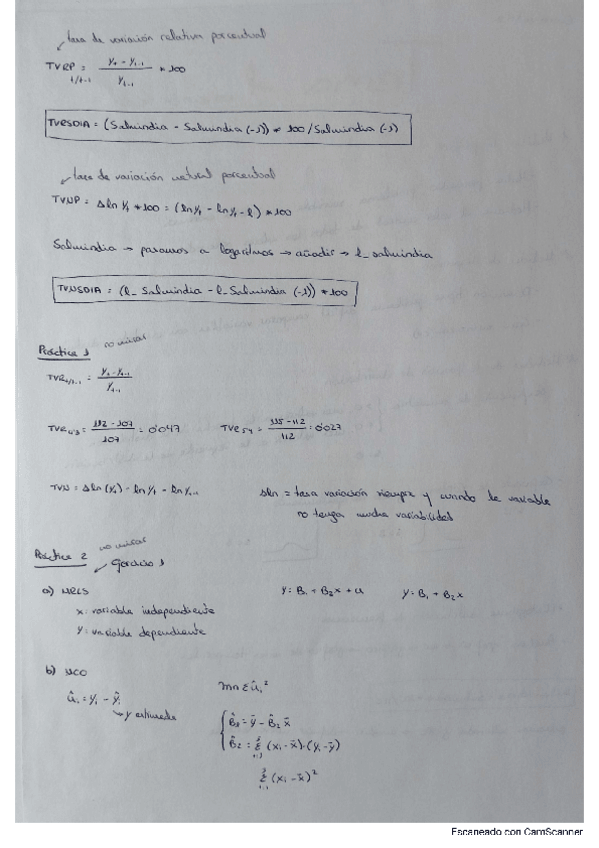 tasa de variación relativa porcentual
TVRP t/t-1 = (Yt - Yt-1) / Yt-1 * 100
TVRSDIA = (Salmindia - Salmindia (-1)) * 100 / Salmindia (-1)
tasa de variación natural porcentual
TVNP = Δln Yt * 100 = (ln Yt - ln Yt-1) * 100
Salmindia → pasamos a logaritmos → añadir → l_salmindia
TVNSDIA = (l_Salmindia - l_Salmindia (-1)) * 100
Práctica 1 no mirar
TVR t/t-1 = (Yt - Yt-1) / Yt-1
TVR 4/3 = (112 - 107) / 107 = 0'047 TVR 5/4 = (115 - 112) / 112 = 0'027
TVN = Δln (Yt) - ln Yt - ln Yt-1 Δln = tasa variación siempre y cuando la variable
no tenga mucha variabilidad
Práctica 2 no mirar
Ejercicio 1
a) MRLS Y = B1 + B2x + u Y = B1 + B2x
x: variable independiente
Y: variable dependiente
b) MCO
ûi = Yi - Ŷi min Σûi²
y estimada
B̂1 = ȳ - B̂2 x̄
B̂2 = Σ (xi - x̄)·(yi - ȳ)
Σ (xi - x̄)²
Escaneado con CamScanner